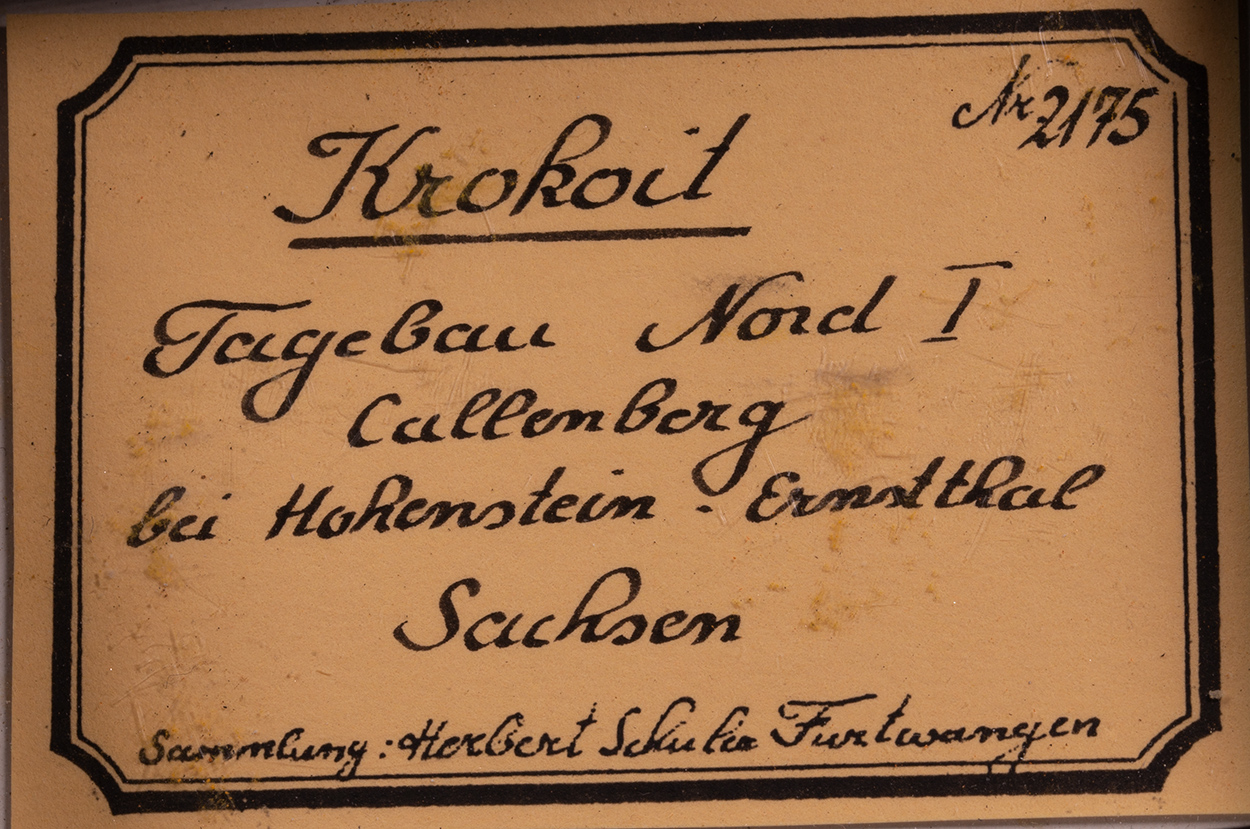 Nr 2175
Krokoit
Tagebau Nord I
Callenberg
bei Hohenstein-Ernstthal
Sachsen
Sammlung: Herbert Furtwangen